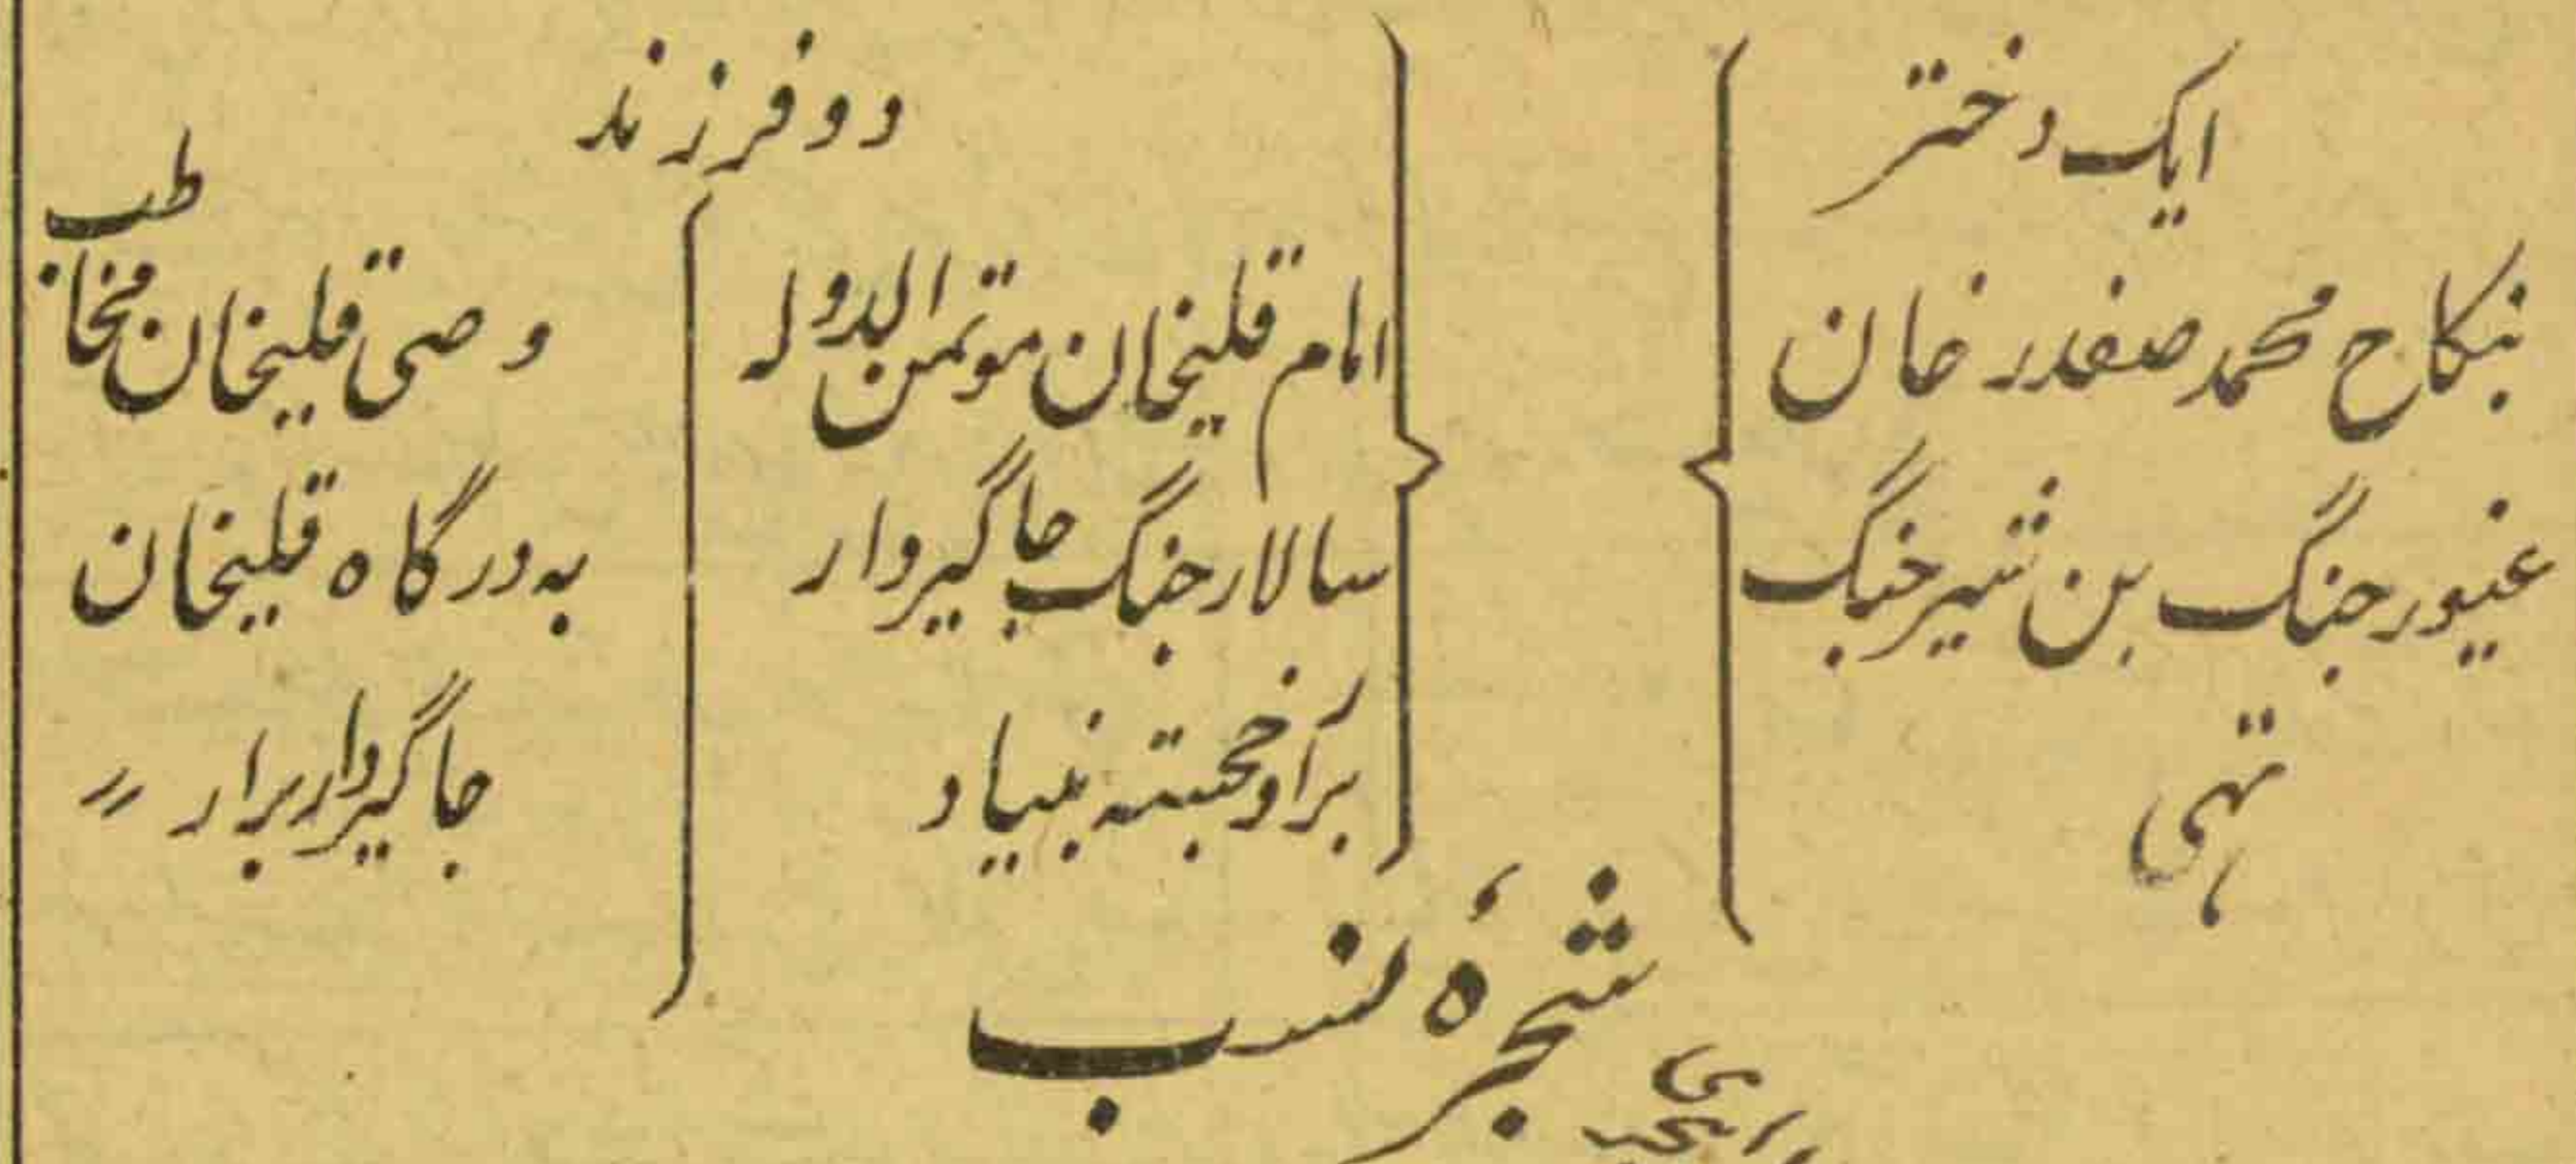 ایک دختر
بنکاح محمد صفدر خان
غیور جنگ بن شیر جنگ
تہی
دو فرزند
امام قلیخان موتمن الدولہ
سالار جنگ جاگیردار
برار و خجستہ بنیاد
وصی قلیخان مخاطب
بہ درگاہ قلیخان
جاگیردار برار ״
شجرۂ نسب